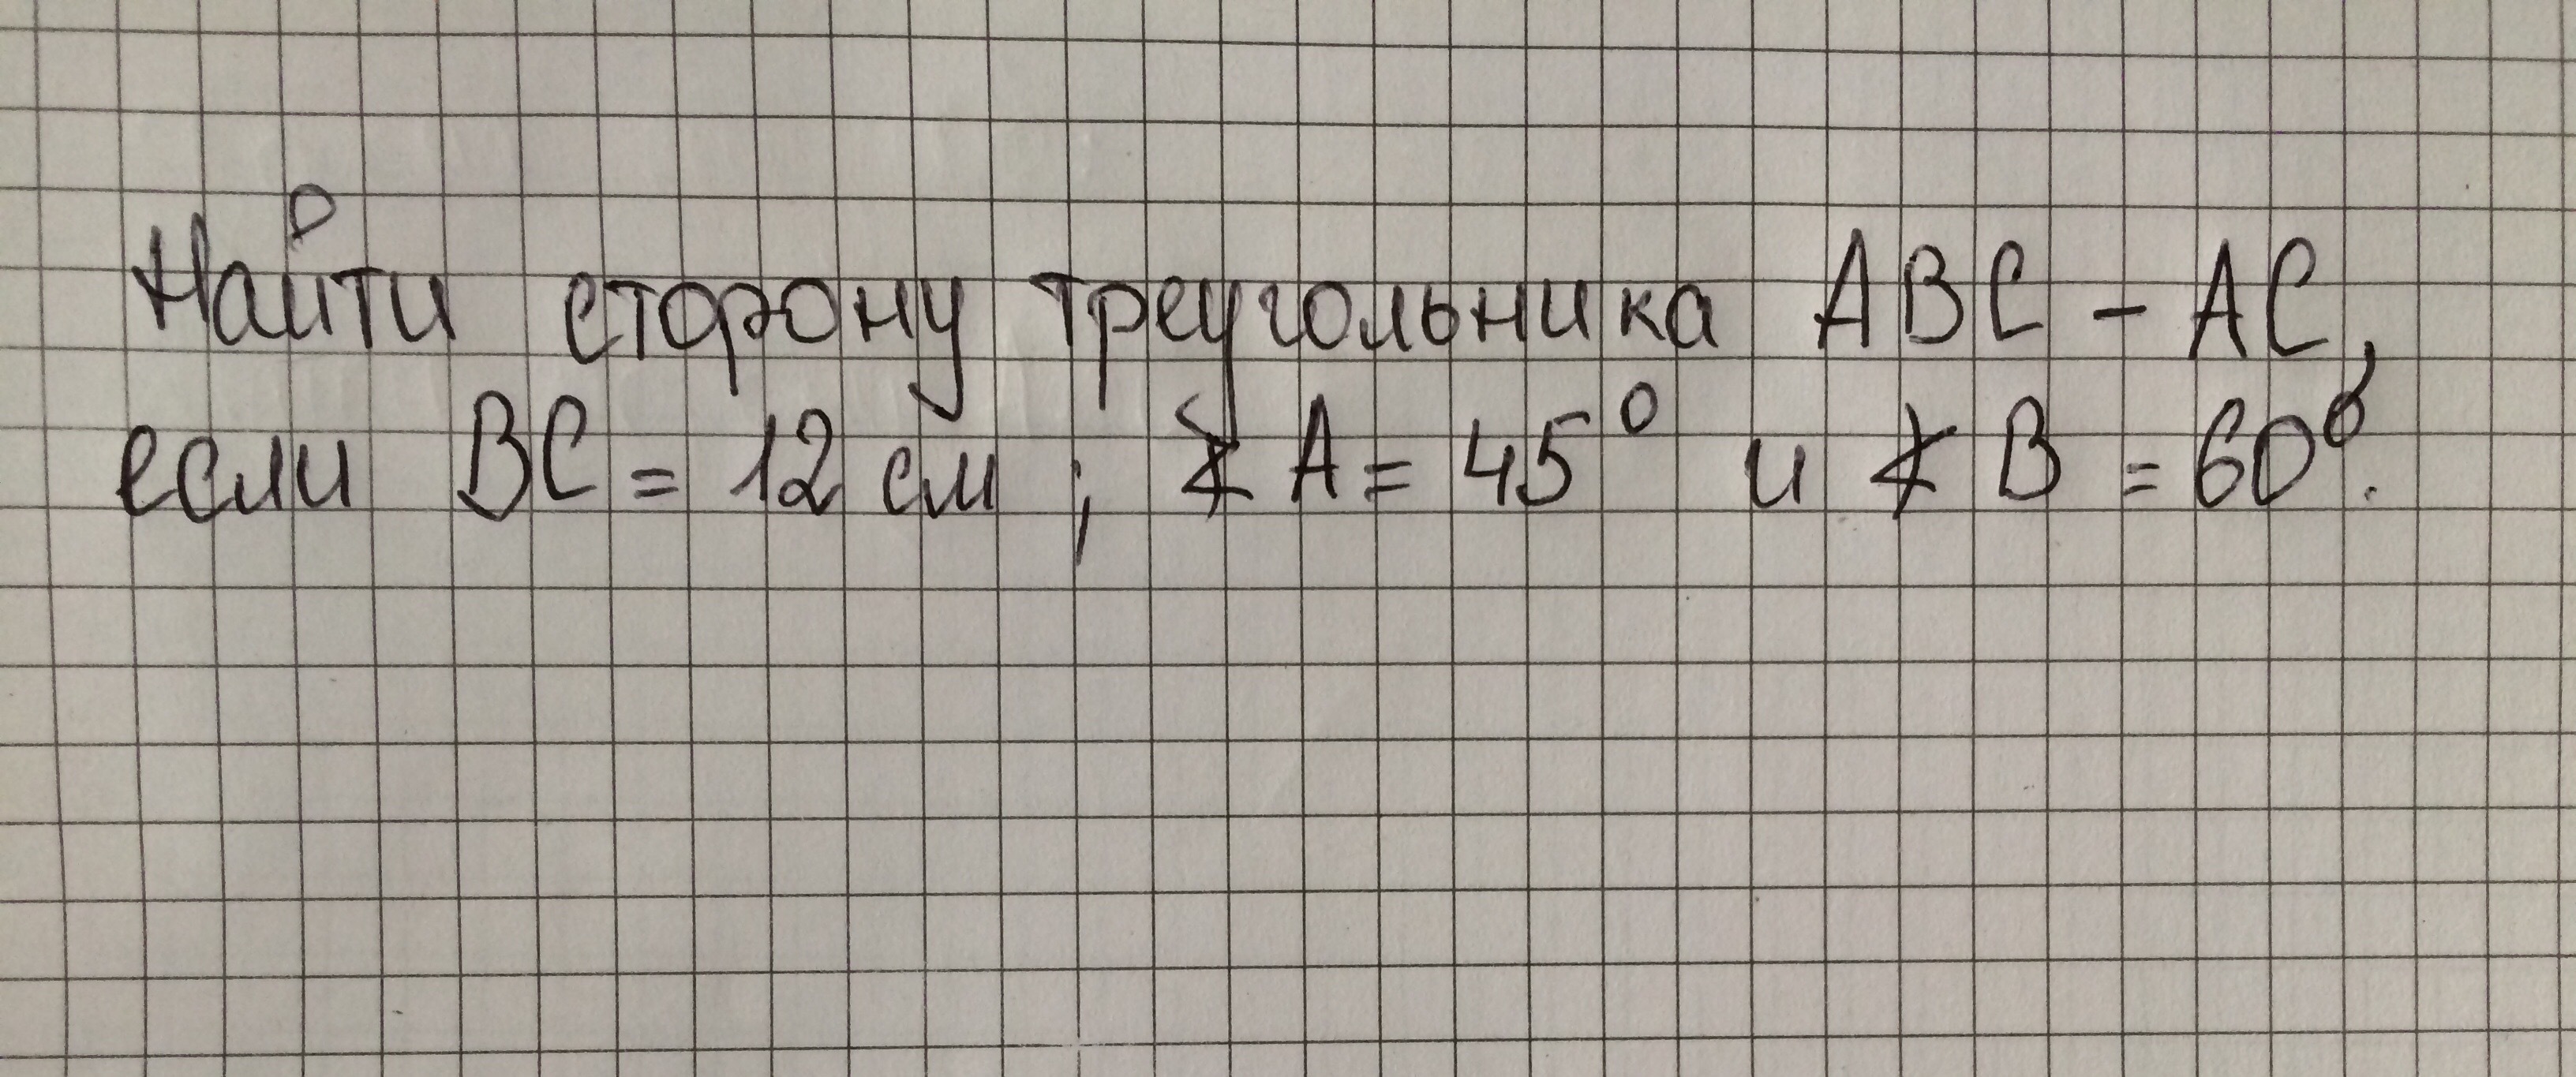 Найти сторону треугольника ABC - AC,
если BC = 12 см ; ∡ A = 45° и ∡ B = 60°.